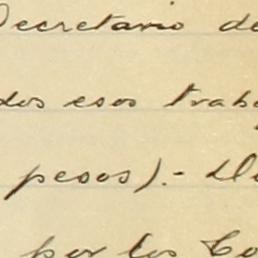 Secretario de
dos esos trab
pesos).-
por los Co